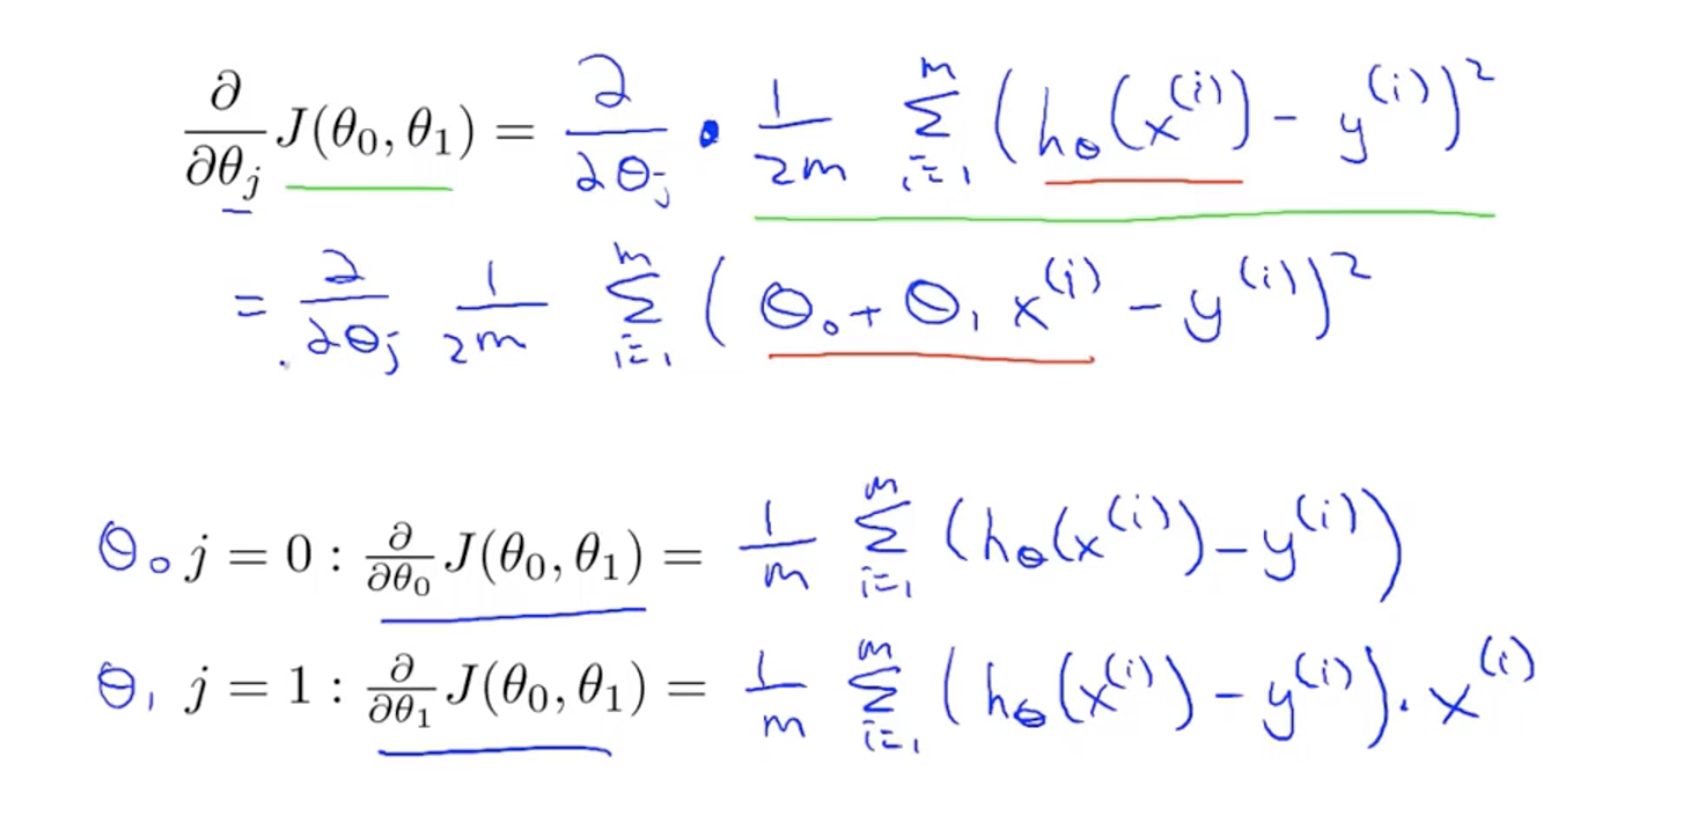 ∂/∂θ_j J(θ₀, θ₁) = ∂/∂θ_j · 1/2m Σ_{i=1}^{m} (h_θ(x^{(i)}) - y^{(i)})²
= ∂/∂θ_j 1/2m Σ_{i=1}^{m} (θ₀ + θ₁ x^{(i)} - y^{(i)})²
θ₀ j = 0 : ∂/∂θ₀ J(θ₀, θ₁) = 1/m Σ_{i=1}^{m} (h_θ(x^{(i)}) - y^{(i)})
θ₁ j = 1 : ∂/∂θ₁ J(θ₀, θ₁) = 1/m Σ_{i=1}^{m} (h_θ(x^{(i)}) - y^{(i)}) . x^{(i)}